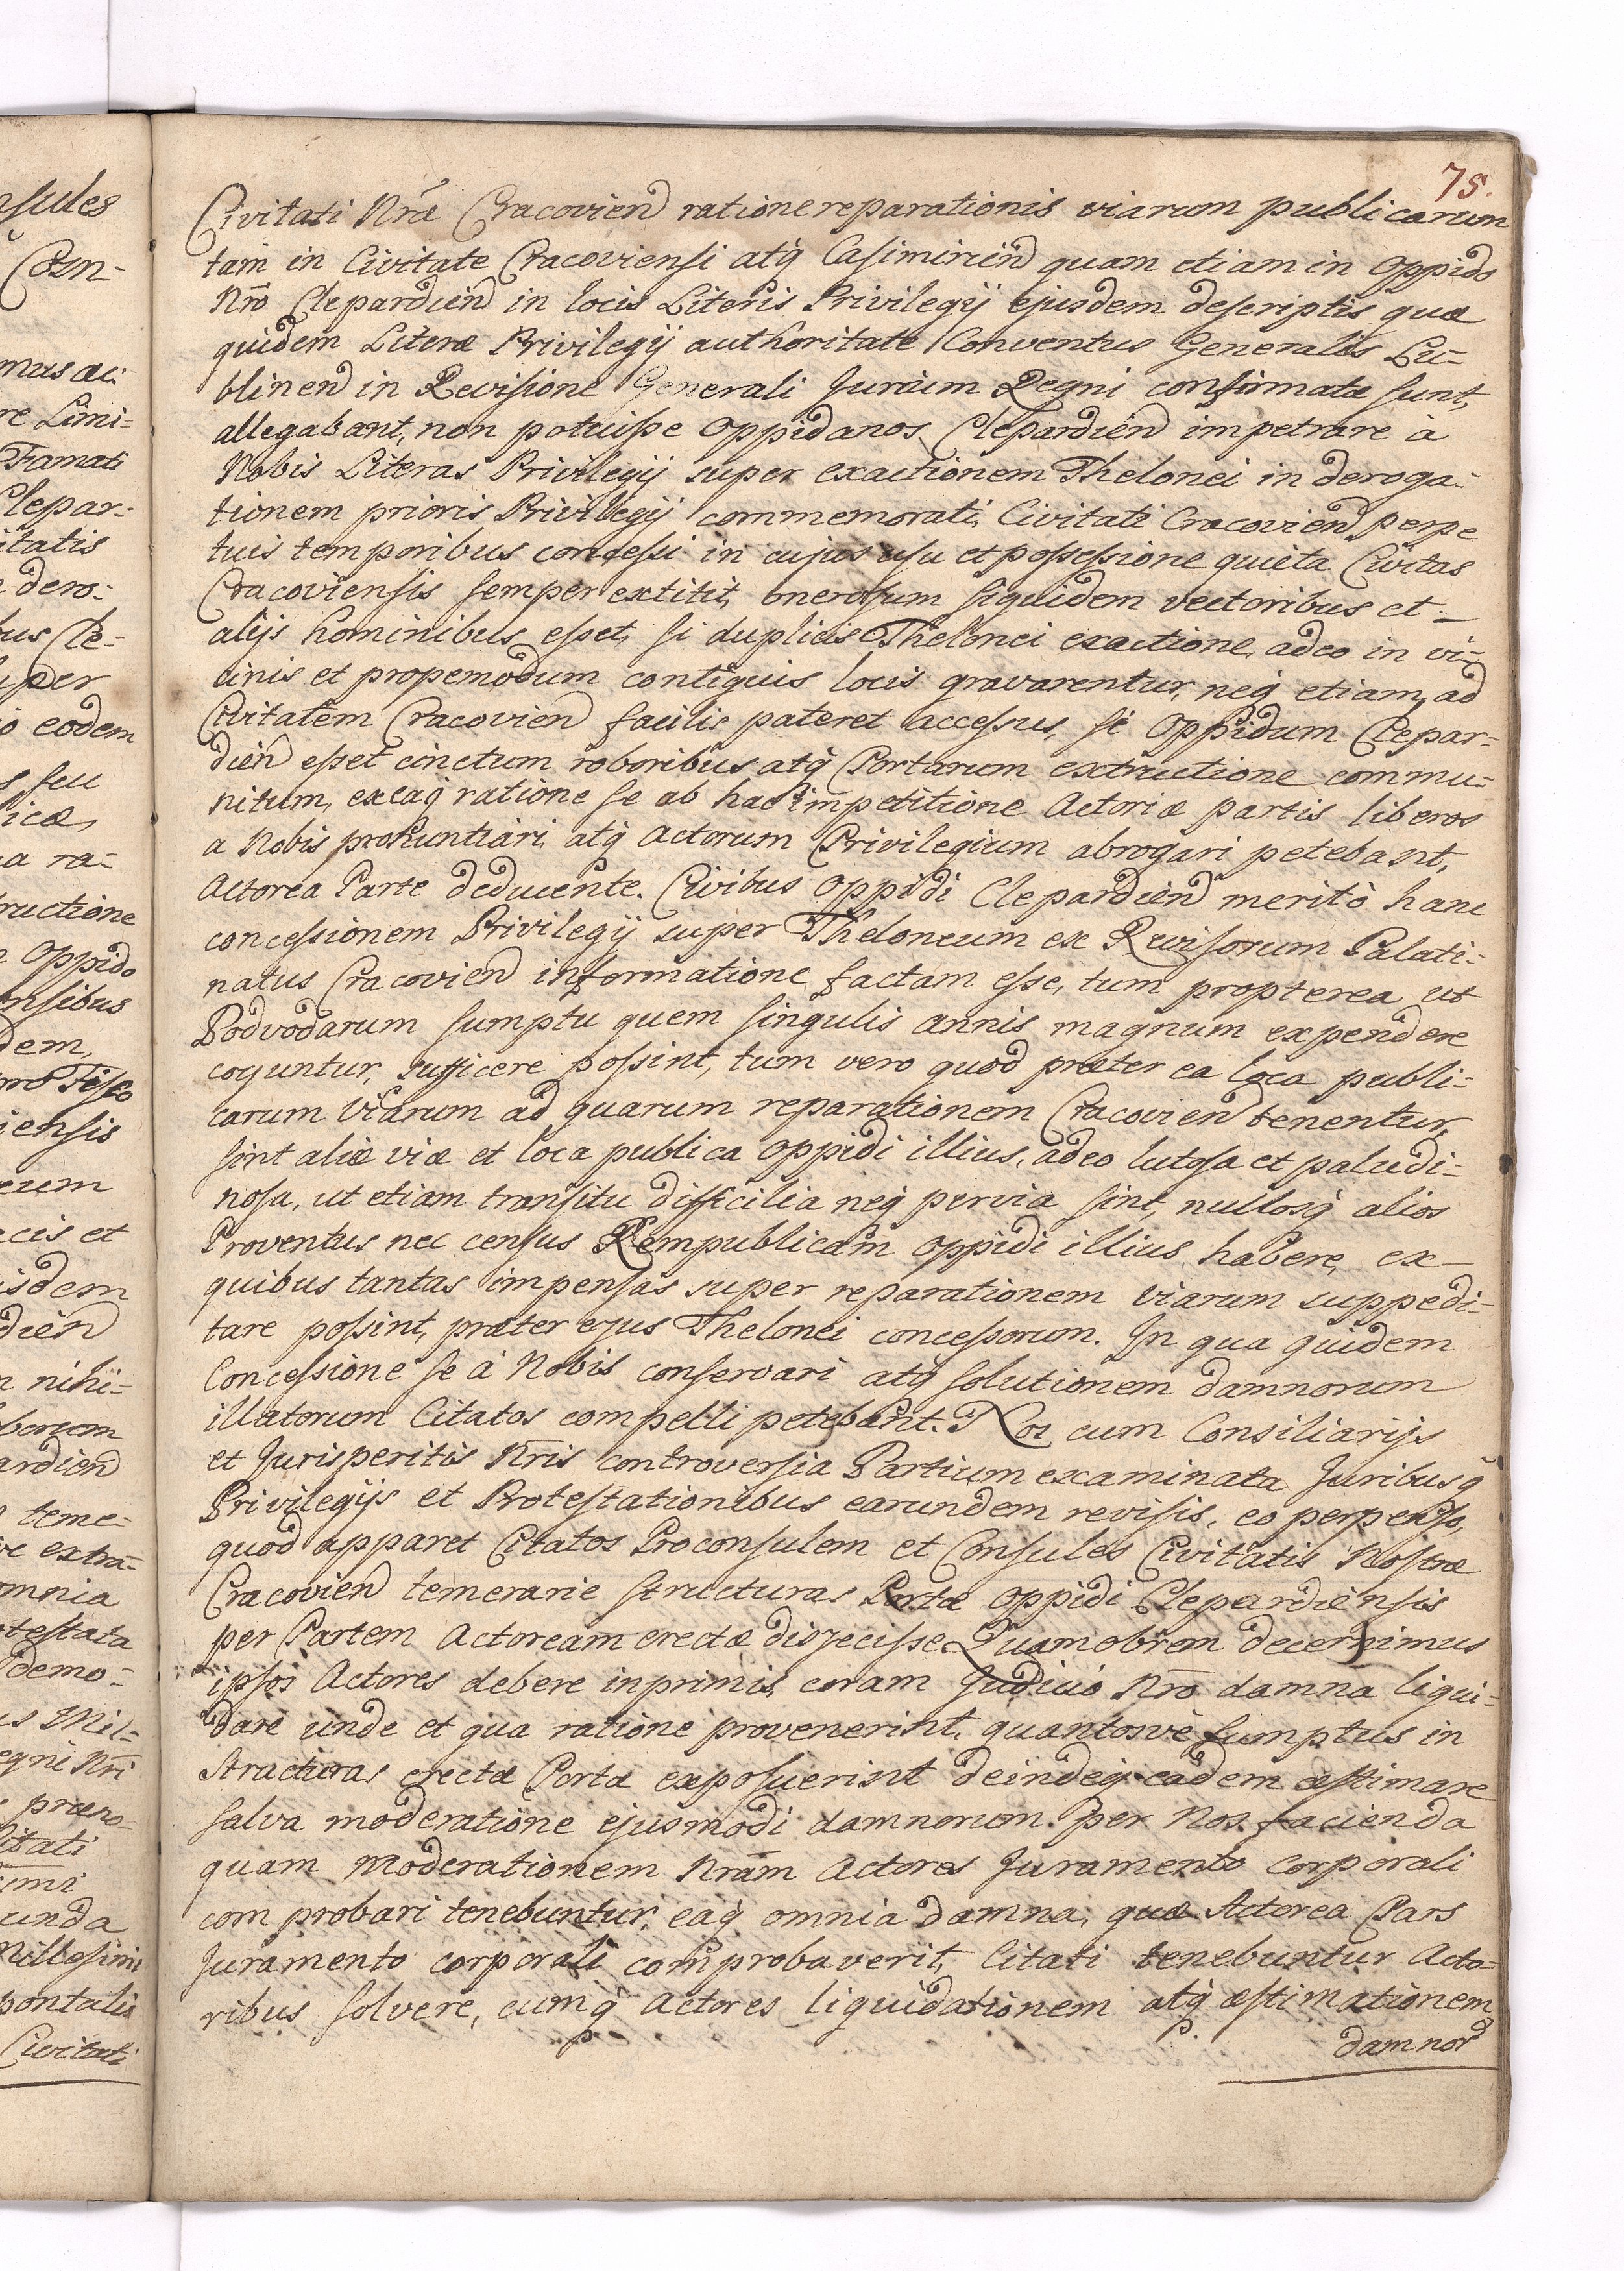 75.
Civitati Nrae Cracovien ratione reparationis viarum publicarum
tam in Civitate Cracoviensi atq Casimirien quam etiam in Oppido
Nro Clepardien in locis Literis Privilegij ejusdem descriptis quae
quidem Literae Privilegij authoritate Conventus Generalis Lu-
blinen in Revisione Generali Jurium Regni confirmatae sunt,
allegabant, non potuisse Oppidanos Clepardien impetrare à
Nobis Literas Privilegij super exactionem Thelonei in deroga-
tionem prioris Privilegij commemorati, Civitati Cracovien perpe
tuis temporibus concessi in cujus usu et possessione quieta Civitas
Cracoviensis semper extitit, onerosum siquidem vectoribus et -
alijs hominibus esset, si duplicis Thelonei exactione, adeo in vi-
cinis et propemodum contiguis locis gravarentur, neq etiam ad
Civitatem Cracovien facilis pateret accessus, si Oppidum Clepar-
dien esset cinctum roboribus atq Portarum extructione commu-
nitum, ex eaq ratione se ab hac impetitione Actoriae partis liberos
a Nobis pronuntiari, atq Actorum Privilegium abrogari petebant,
Actorea Parte deducente. Civibus Oppidi Clepardien meritò hanc
concessionem Privilegij super Theloneum ex Revisorum Palati-
natus Cracovien informatione factam esse, tum propterea ut
Podvodarum sumptu quem singulis annis magnum expendere
coguntur, sufficere possint, tum vero quod praeter ea loca publi-
carum Viarum ad quarum reparationem Cracovien tenentur,
sint aliae viae et loca publica Oppidi illius, adeo lutosa et paludi-
nosa, ut etiam transitu difficilia neq pervia sint, nullosq alios
Proventus nec census Rempublicam Oppidi illius habere, ex -
quibus tantas impensas super reparationem viarum suppedi-
tare possint, praeter ejus Thelonei concessorum. In qua quidem
Concessione se à Nobis conservari atq solutionem damnorum
illatorum Citatos compelli petebant. Nos cum Consiliarijs
et Jurisperitis Nris controversia Partium examinata Juribusq
Privilegijs et Protestationibus earundem revisis, eo perpenso,
quod apparet Citatos Proconsulem et Consules Civitatis Nostrae
Cracovien temerarie structuras Portae Oppidi Clepardiensis
per Partem Actoream erectae disjecisse. Quamobrem decernimus
ipsos Actores debere inprimis, coram Judicio Nro damna liqui-
dare unde et qua ratione provenerint, quantosvè sumptus in
Structuras erectae Portae exposuerint deindeq eadem aestimare
salva moderatione ejusmodi damnorum per Nos facienda
quam moderationem Nram Actores Juramento corporali
comprobari tenebuntur, eaq omnia damna, quae Actorea Pars
Juramento corporali comprobaverit, Citati tenebuntur Acto-
ribus solvere, cumq Actores liquidationem atq aestimationem
damnor